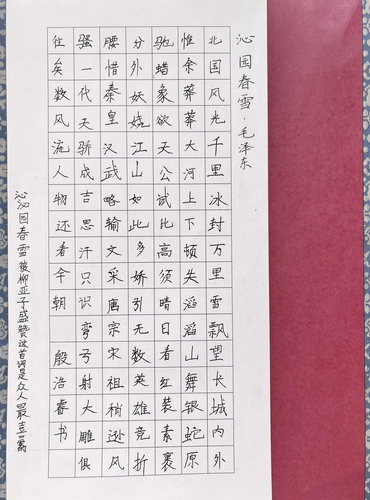 沁园春雪·毛泽东
北国风光千里冰封万里雪飘望长城内外
惟余莽莽大河上下顿失滔滔山舞银蛇原
驰蜡象欲天公试比高须晴日看红装素裹
分外妖娆江山如此多娇引无数英雄竞折
腰惜秦皇汉武略输文采唐宗宋祖稍逊风
骚一代天骄成吉思汗只识弯弓射大雕俱
往矣数风流人物还看今朝 殷浩睿书
沁园春雪被柳亚子盛赞这首词是众人最喜